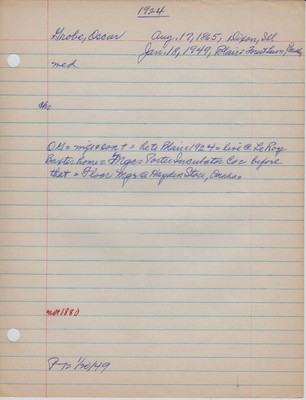 1924
Grobe, Oscar Aug. 17, 1865, Dixon, Ill
Jan. 18, 1949, Blair = Forest Lawn,
med
Ob = wife + son + = to Blair 1924 = live @ LeRoy
Baxter home = Mgr = Porter Incubator Co = before
that = Floor Mgr @ Hayden Store, Omaha =
1880
P-T 1/20/49